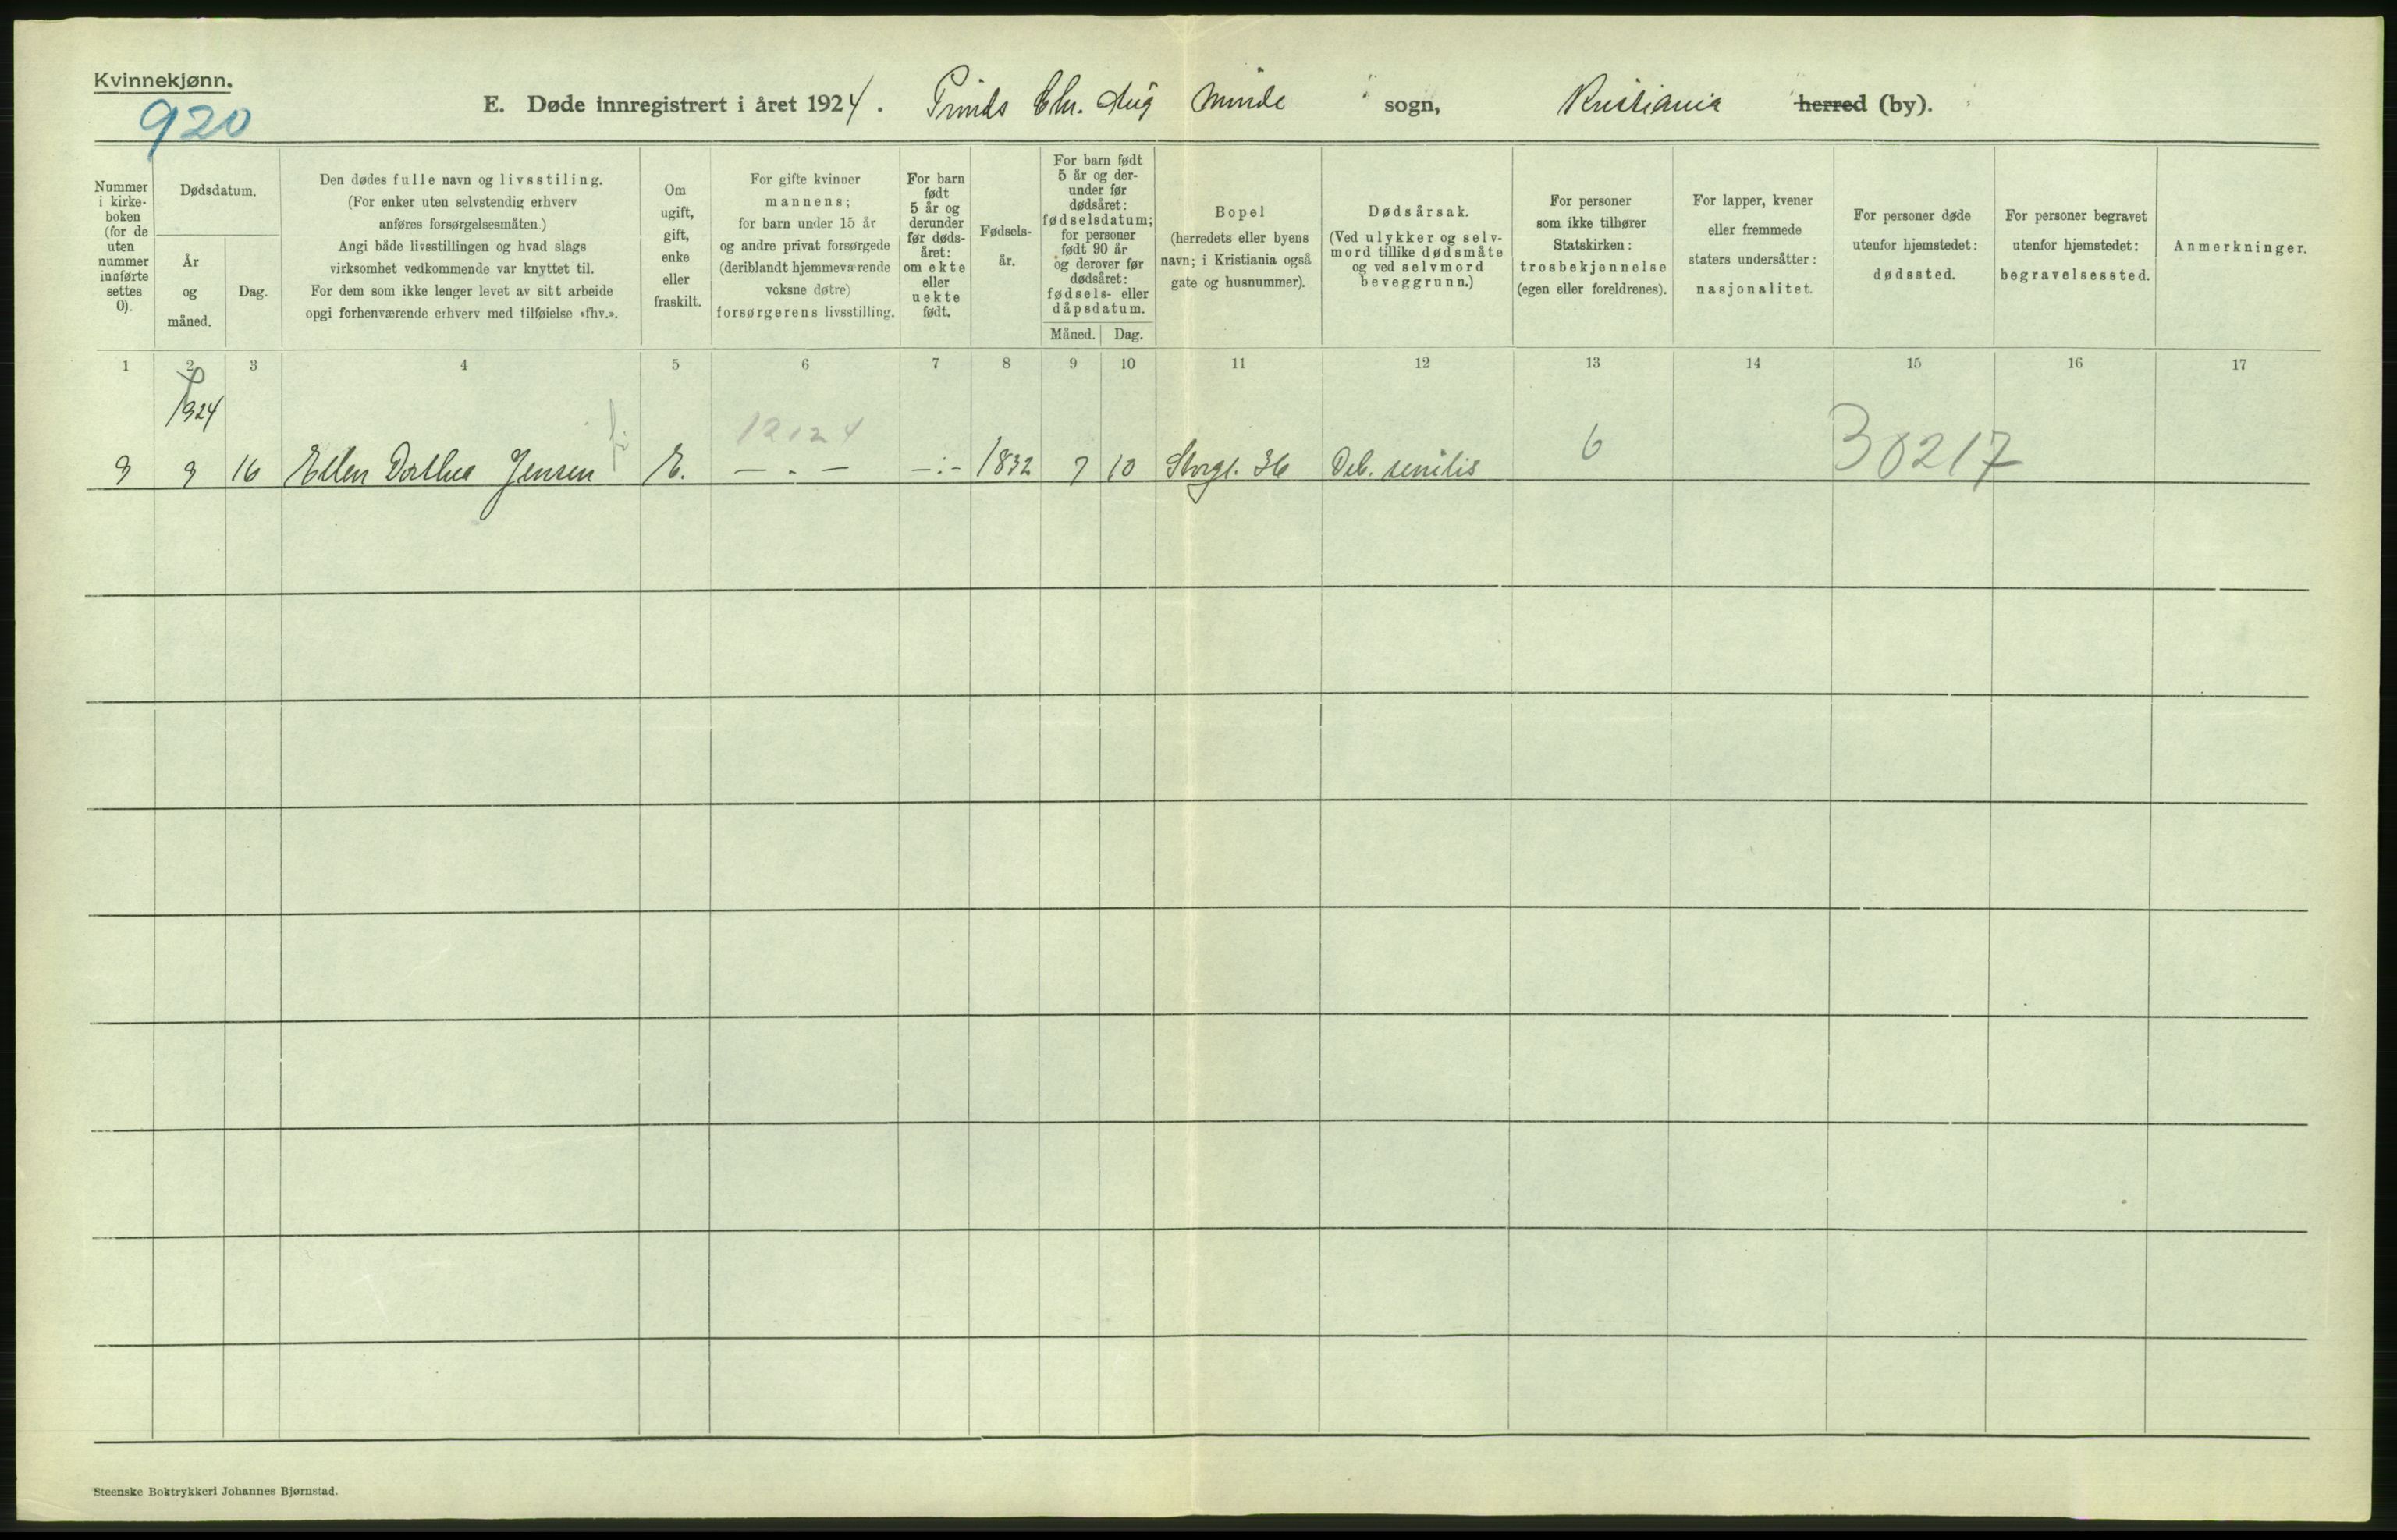 Kvinnekjønn.
920
E. Døde innregistrert i året 1924. Prinds Chr. Aug Minde sogn, Kristiania herred (by).
Nummer
i kirke-
boken
(for de
uten
nummer
innførte
settes
0).
Dødsdatum.
År
og
måned.
Dag.
Den dødes fulle navn og livsstiling.
(For enker uten selvstendig erhverv
anføres forsørgelsesmåten.)
Angi både livsstillingen og hvad slags
virksomhet vedkommende var knyttet til.
For dem som ikke lenger levet av sitt arbeide
opgi forhenværende erhverv med tilføielse «fhv.».
Om
ugift,
gift,
enke
eller
fraskilt.
For gifte kvinner
mannens;
for barn under 15 år
og andre privat forsørgede
(deriblandt hjemmeværende
voksne døtre)
forsørgerens livsstilling.
For barn
født
5 år og
derunder
før døds-
året:
om ekte
eller
uekte
født.
Fødsels-
år.
For barn født
5 år og der-
under før
dødsåret:
fødselsdatum;
for personer
født 90 år
og derover før
dødsåret:
fødsels- eller
dåpsdatum.
Måned. Dag.
Bopel
(herredets eller byens
navn; i Kristiania også
gate og husnummer).
Dødsårsak.
(Ved ulykker og selv-
mord tillike dødsmåte
og ved selvmord
beveggrunn.)
For personer
som ikke tilhører
Statskirken:
trosbekjennelse
(egen eller foreldrenes).
For lapper, kvener
eller fremmede
staters undersåtter:
nasjonalitet.
For personer døde
utenfor hjemstedet:
dødssted.
For personer begravet
utenfor hjemstedet:
begravelsessted.
Anmerkninger.
1 2 3 4 5 6 7 8 9 10 11 12 13 14 15 16 17
1924
12124
3 3 16 Ellen Dorthea Jensen E. — . — — : — 1832 7 10 Storgt. 36 Deb. senilis 6 30217
Steenske Boktrykkeri Johannes Bjørnstad.